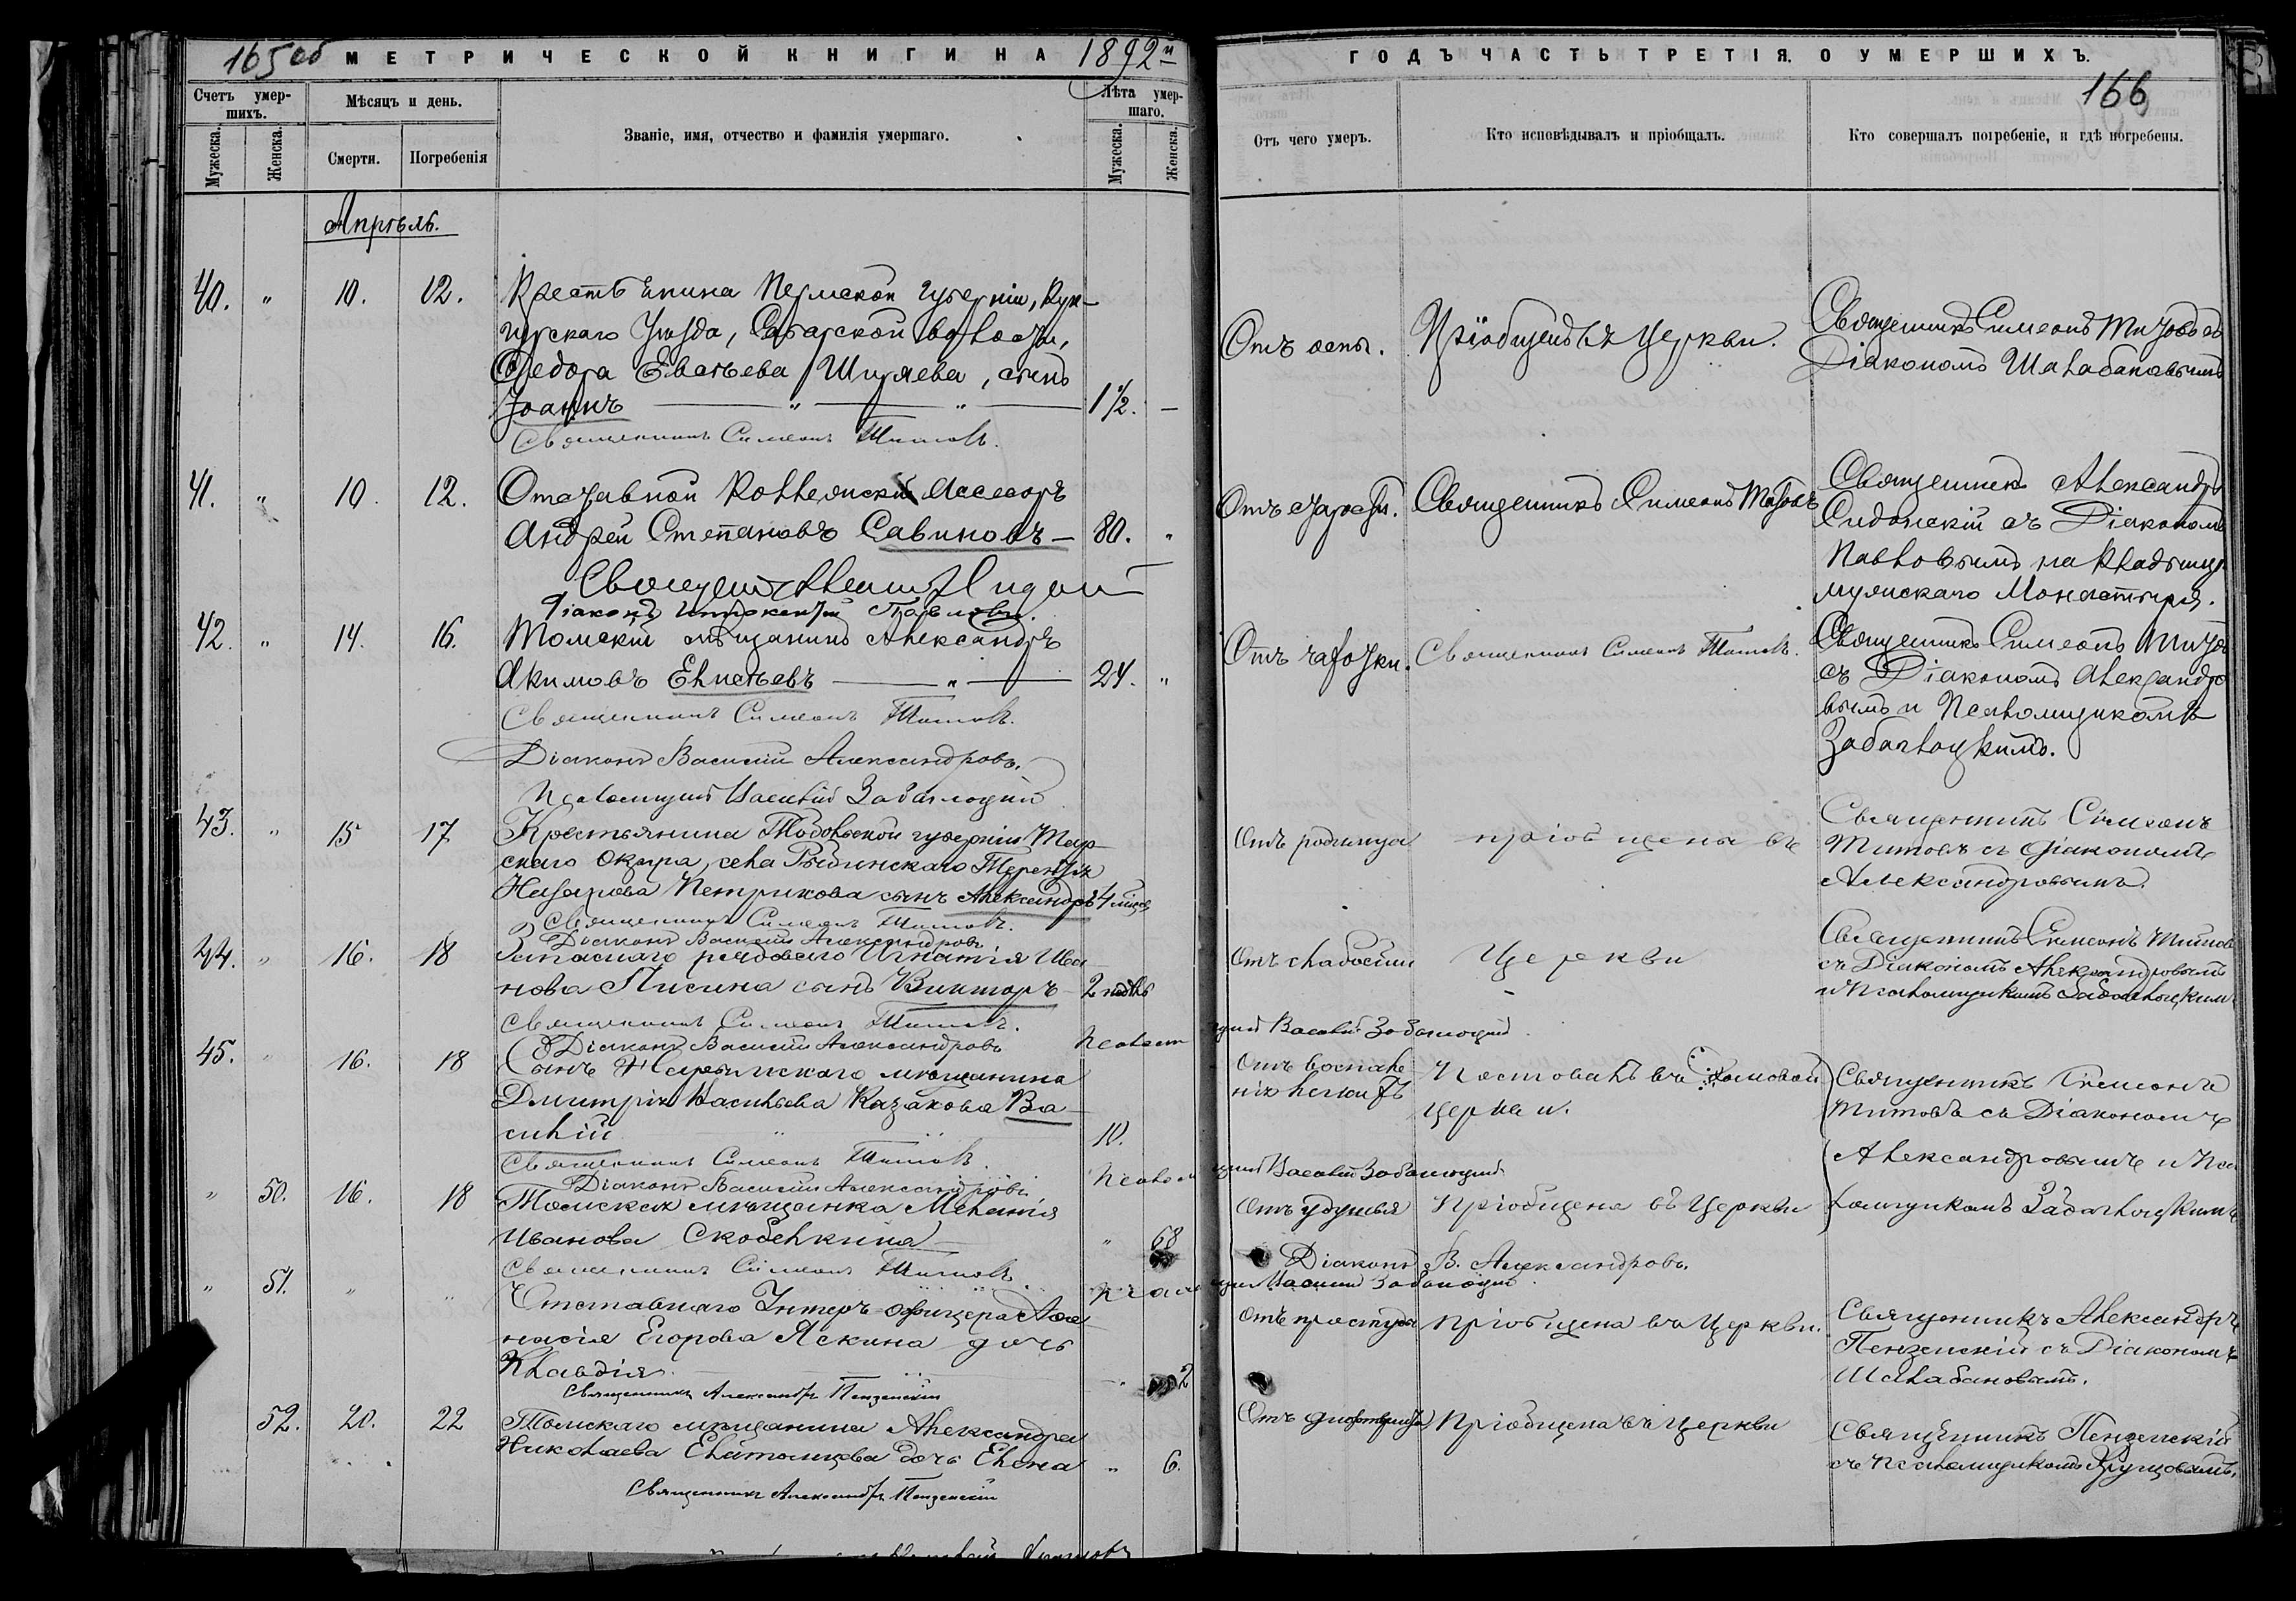 165 об
МЕТРИЧЕСКОЙ КНИГИ НА 1892й
Счетъ умер-
шихъ.
Мѣсяцъ и день.
Званіе, имя, отчество и фамилія умершаго.
Лѣта умер-
шаго.
Мужеска.
Женска.
Смерти.
Погребенія
Мужеска.
Женска.
Апрѣль.
40. " 10. 12. Крестьянина Пермской губерніи, Кун-
гурскаго Уѣзда, волости,
Федора Евсѣева Ширяева, сынъ
Іоаннъ 1 1/2. —
Священникъ Симеонъ Титовъ.
41. " 10. 12. Отставной Коллежскій Ассесоръ
Андрей Степановъ Савиновъ — 80. "
Діаконъ Иннокентій Павловъ.
42. " 14. 16. Томскій мѣщанинъ Александръ
Акимовъ Елисѣевъ 24. "
Священникъ Симеонъ Титовъ.
Діаконъ Василій Александровъ.
Псаломщикъ Василій Заблоцкій
43. " 15 17 Крестьянина Тобольской губерніи Тар-
скаго Округа, села Рыбинскаго Терентія
Назарова Петрикова сынъ Александръ 4 мѣс
Священникъ Симеонъ Титовъ.
Діаконъ Василій Александровъ
44. " 16. 18 Запаснаго рядоваго Игнатія Ива-
нова Писина сынъ Викторъ 2 недѣль
Священникъ Симеонъ Титовъ.
Діаконъ Василій Александровъ
45. " 16. 18 Сынъ мѣщанина
Дмитрія Васильева Казакова Ва-
силій 10.
Священникъ Симеонъ Титовъ.
Діаконъ Василій Александровъ
" 50. 16. 18 Томская мѣщанка Меланія
Иванова Скобелкина " 68
Священникъ Симеонъ Титовъ
" 51. " " Отставнаго Унтеръ-офицера Афа-
насія Егорова Яскина дочь
Клавдія 2
Священникъ Александръ Пензенскій
52. 20. 22 Томскаго мѣщанина Александра
Николаева дочь Елена " 6.
Священникъ Александръ Пензенскій
ГОДЪ ЧАСТЬ ТРЕТІЯ. О УМЕРШИХЪ.
166
Отъ чего умеръ.
Кто исповѣдывалъ и пріобщалъ.
Кто совершалъ погребеніе, и гдѣ погребены.
Отъ оспы. Пріобщенъ въ Церкви. Священникъ Симеонъ Титовъ съ
Діакономъ Шалабановымъ
Отъ старости. Священникъ Симеонъ Титовъ Священникъ Александръ
Сидонскій съ Діакономъ
Павловымъ на Кладбищѣ
Монастыря.
Отъ чахотки. Священникъ Симеонъ Титовъ. Священникъ Симеонъ Титовъ
съ Діакономъ Александро
вымъ и Псаломщикомъ
Заблоцкимъ.
Отъ родимца пріобщены въ Священникъ Симеонъ
Титовъ съ Діакономъ
Александровымъ.
Отъ слабости Церкви Священникъ Симеонъ Титовъ
съ Діакономъ Александровымъ
и Псаломщикомъ Заблоцким
Псаломщикъ Василій Заблоцкій
Отъ воспале-
нія легкихъ
въ домовой
Церкви.
Священникъ Симеонъ
Титовъ съ Діакономъ
Александровымъ и Пса
ломщикомъ Заблоцкимъ
Псаломщикъ Василій Заблоцкій
Отъ удушья Пріобщена въ Церкви
Діаконъ В. Александровъ.
Псаломщикъ Василій Заблоцкій
Отъ простуды Пріобщена въ Церкви. Священникъ Александръ
Пензенскій съ Діакономъ
Шалабановымъ.
Отъ дифтерита Пріобщена въ Церкви Священникъ Пензенскій
съ Псаломщикомъ